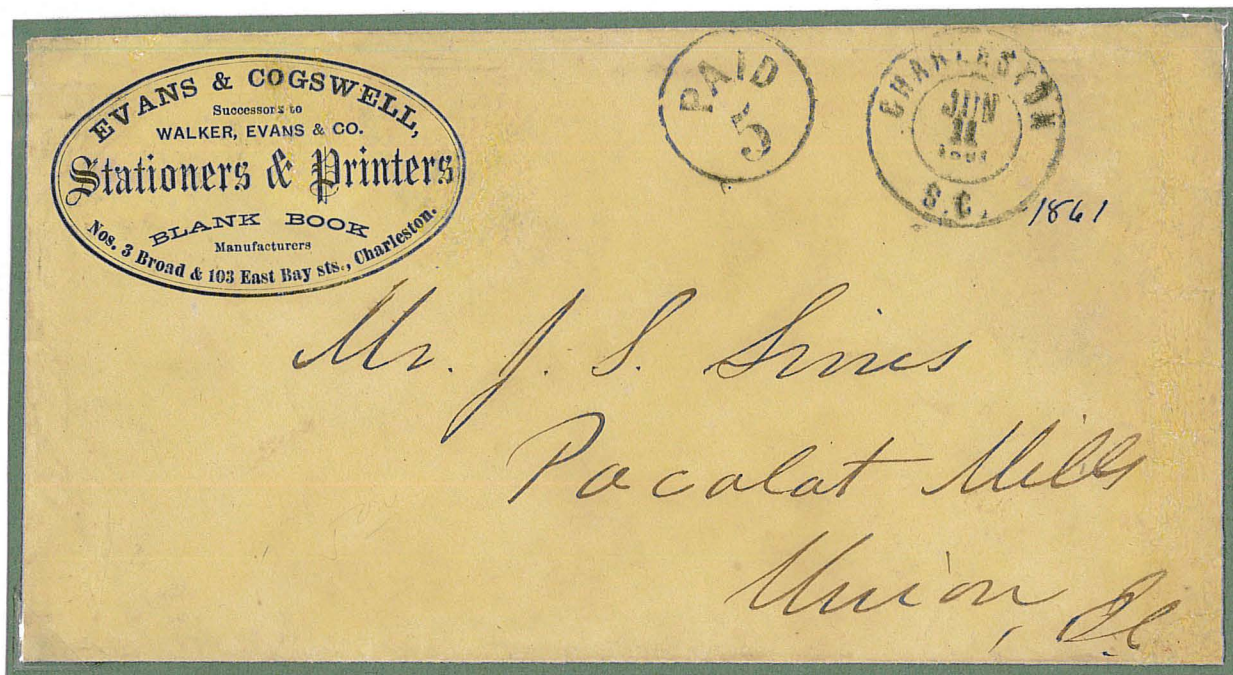 EVANS & COGSWELL,
Successors to
WALKER, EVANS & CO.
Stationers & Printers
BLANK BOOK
Manufacturers
Nos. 3 Broad & 103 East Bay sts., Charleston.
PAID
5
CHARLESTON
JUN
11
S.C.
1861
Mr. J. S. Sims
Pacolat Mills
Union,